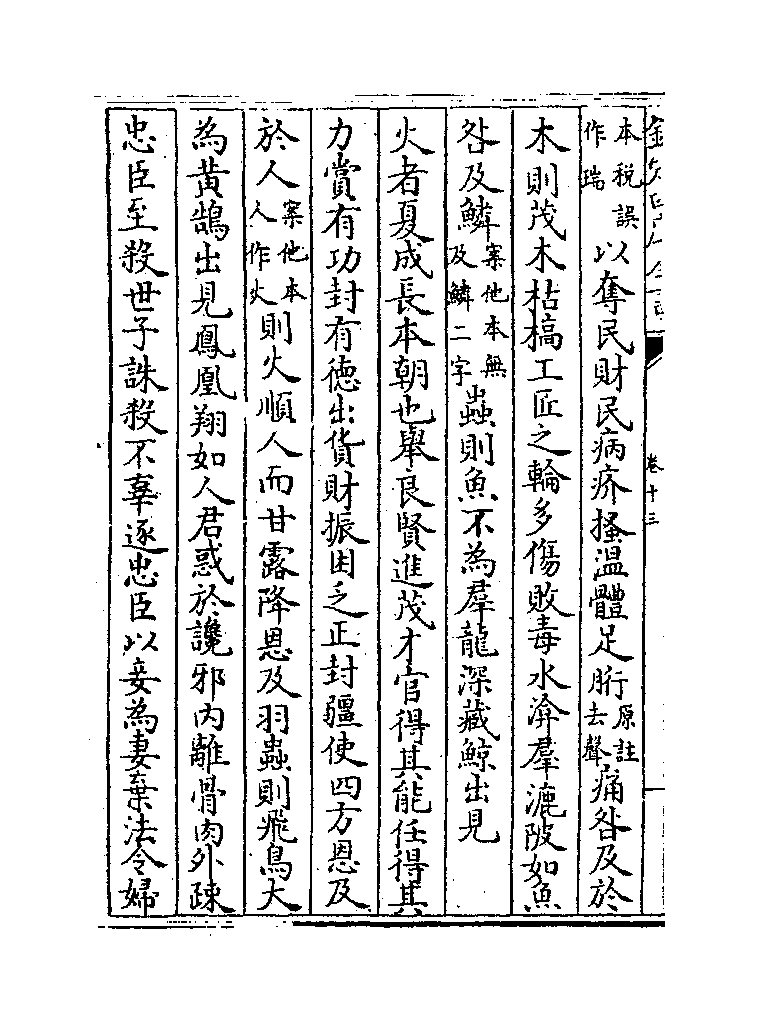 本税誤作瑞以奪民財民病疥搔溫體足胻原註去聲痛咎及於
木則茂木枯槁工匠之輪多傷敗毒水渰羣漉陂如魚
咎及鱗案他本無及鱗二字蟲則魚不為羣龍深藏鯨出見
火者夏成長本朝也舉良賢進茂才官得其能任得其
力賞有功封有德出貨財振困乏正封疆使四方恩及
於人案他本人作火則火順人而甘露降恩及羽蟲則飛鳥大
為黃鵠出見鳳凰翔如人君惑於讒邪內離骨肉外疎
忠臣至殺世子誅殺不辜逐忠臣以妾為妻棄法令婦
卷十三